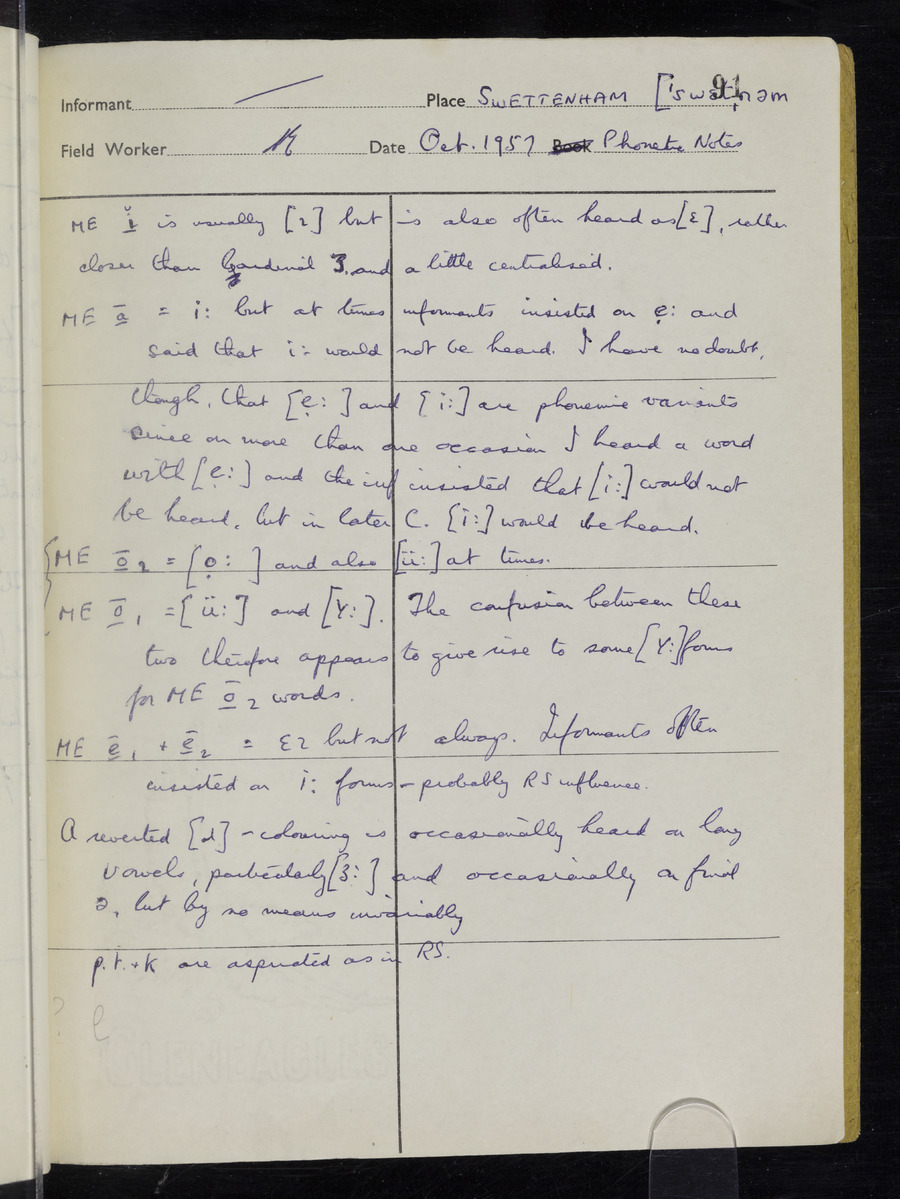 91
Informant Place SWETTENHAM
Field Worker Date Oct. 1957 Book Phonetic Notes
ME ĭ is usually [ɩ] but is also often heard as [ɛ], rather
closer than Cardinal 3, and a little centralised.
ME ā = i: but at times informants insisted on ẹ: and
said that i: would not be heard. I have no doubt,
though, that [ẹ: ] and [i:] are phonemic variants
since on more than one occasion I heard a word
with [ẹ:] and the inf insisted that [i:] would not
be heard, but in later C. [i:] would be heard.
ME ō₂ = [ọ: ] and also [üː] at times.
ME ō₁ = [üː] and [Y:]. The confusion between these
two therefore appears to give rise to some [Y:] forms
for ME ō₂ words.
ME ē₁ + ē₂ = ɛɩ but not always. Informants often
insisted on i: forms – probably RS influence.
A reverted [ɹ] - colouring is occasionally heard on long
vowels, particularly [ɜ: ] and occasionally on final
ə, but by no means invariably
p. t. + k are aspirated as in RS.
? e
GLENEAGLES